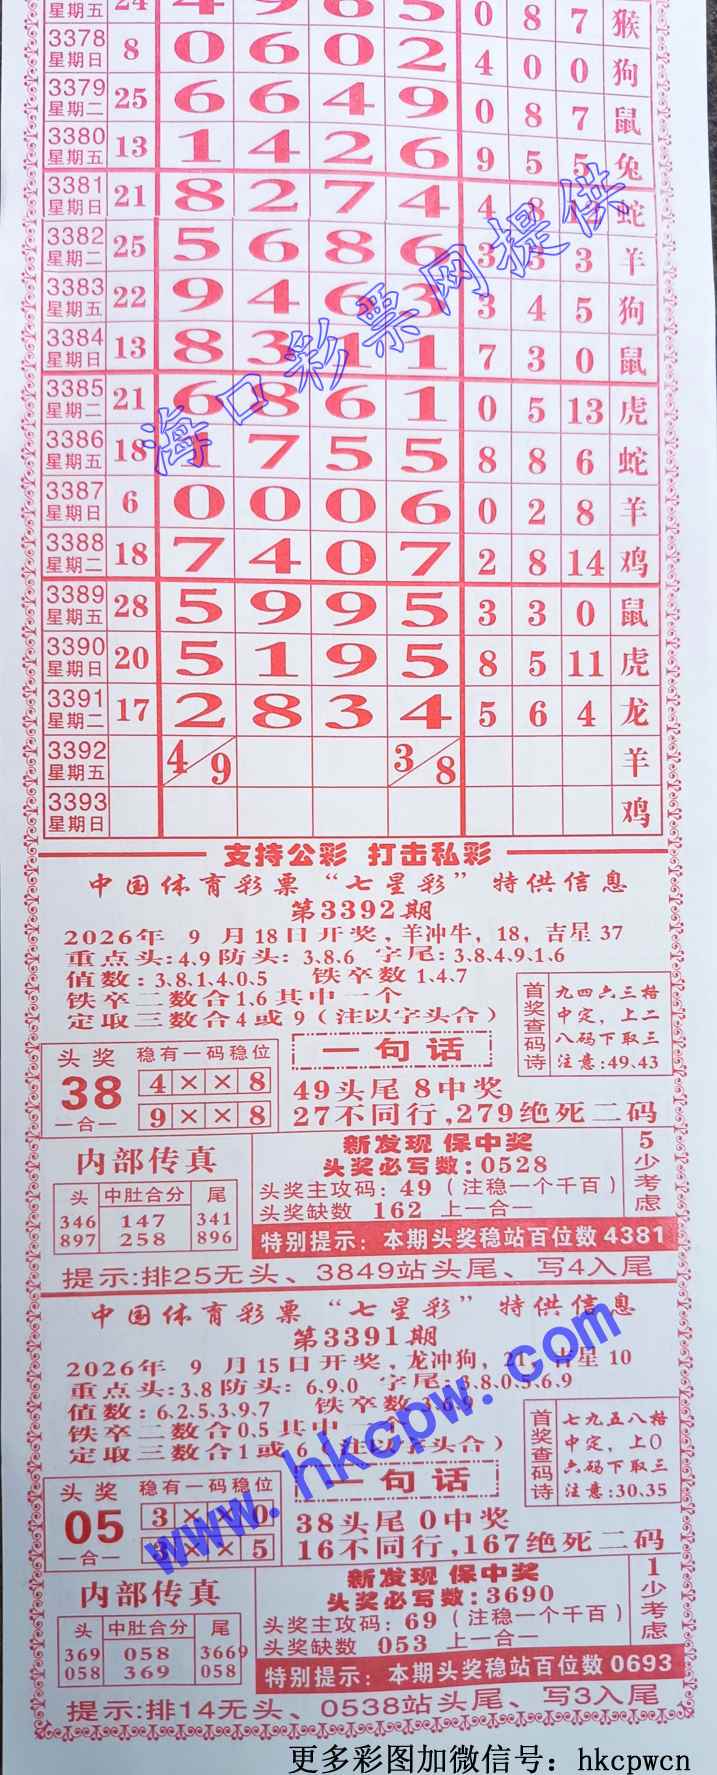 星期五 24 4 9 8 5 0 8 7 猴
3378 星期日 8 0 6 0 2 4 0 0 狗
3379 星期二 25 6 6 4 9 0 8 7 鼠
3380 星期五 13 1 4 2 6 9 5 5 兔
3381 星期日 21 8 2 7 4 4 8 蛇
3382 星期二 25 5 6 8 6 3 3 3 羊
3383 星期五 22 9 4 6 3 3 4 5 狗
3384 星期日 13 8 3 1 1 7 3 0 鼠
3385 星期二 21 6 8 6 1 0 5 13 虎
3386 星期五 18 1 7 5 5 8 8 6 蛇
3387 星期日 6 0 0 0 6 0 2 8 羊
3388 星期二 18 7 4 0 7 2 8 14 鸡
3389 星期五 28 5 9 9 5 3 3 0 鼠
3390 星期日 20 5 1 9 5 8 5 11 虎
3391 星期二 17 2 8 3 4 5 6 4 龙
3392 星期五 4/9 3/8 羊
3393 星期日 鸡
海口彩票网提供
支持公彩 打击私彩
中国体育彩票“七星彩”特供信息
第3392期
2026年 9 月18日开奖,羊冲牛, 18, 吉星 37
重点头:4.9防头: 3.8.6 字尾:3.8.4.9.1.6
值数: 3.8.1.4.0.5 铁卒数 1.4.7
铁卒二数合1.6其中一个
定取三数合4或9(注以字头合)
首奖查码诗
九四六三格
中定, 上二
八码下取三
注意:49.43
头奖
38
一合一
稳有一码稳位
4 × × 8
9 × × 8
一句话
49头尾 8中奖
27不同行,279绝死二码
内部传真
头 中肚合分 尾
346 147 341
897 258 896
新发现 保中奖
头奖必写数:0528
头奖主攻码: 49 (注稳一个千百)
头奖缺数 162 上一合一
5少考虑
特别提示: 本期头奖稳站百位数 4381
提示:排25无头、3849站头尾、写4入尾
中国体育彩票“七星彩”特供信息
第3391期
2026年 9 月15日开奖, 龙冲狗, 21, 吉星 10
重点头:3.8防头: 6.9.0 字尾:3.8.0.5.6.9
值数: 6.2.5.3.9.7 铁卒数 3.6.9
铁卒二数合0.5其中一个
定取三数合1或6(注以字头合)
首奖查码诗
七九五八格
中定, 上0
六码下取三
注意:30.35
头奖
05
一合一
稳有一码稳位
3 × × 0
8 × × 5
一句话
38头尾 0中奖
16不同行,167绝死二码
内部传真
头 中肚合分 尾
369 058 3669
058 369 058
新发现 保中奖
头奖必写数:3690
头奖主攻码: 69 (注稳一个千百)
头奖缺数 053 上一合一
1少考虑
特别提示: 本期头奖稳站百位数 0693
提示:排14无头、0538站头尾、写3入尾
www.hkcpw.com
更多彩图加微信号: hkcpwcn